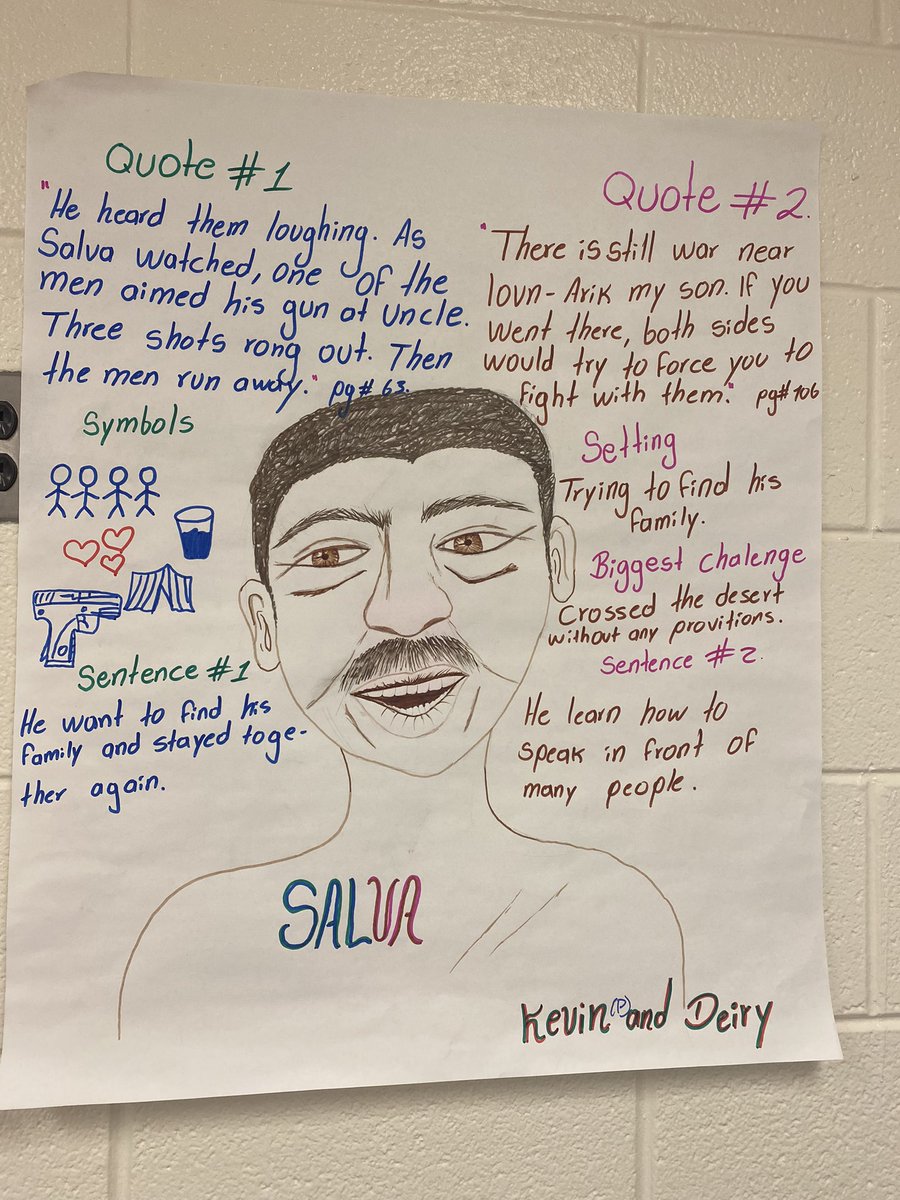 Quote #1
"He heard them loughing. As
Salva watched, one of the
men aimed his gun at Uncle.
Three shots rong out. Then
the men run away." pg# 63.
Symbols
Sentence #1
He want to find his
family and stayed toge-
ther again.
Quote #2.
"There is still war near
lovn-Arik my son. If you
went there, both sides
would try to force you to
fight with them." pg# 106
Setting
Trying to find his
family.
Biggest chalenge
Crossed the desert
without any provitions.
Sentence #2.
He learn how to
speak in front of
many people.
SALVA
Kevin (P) and Deiry